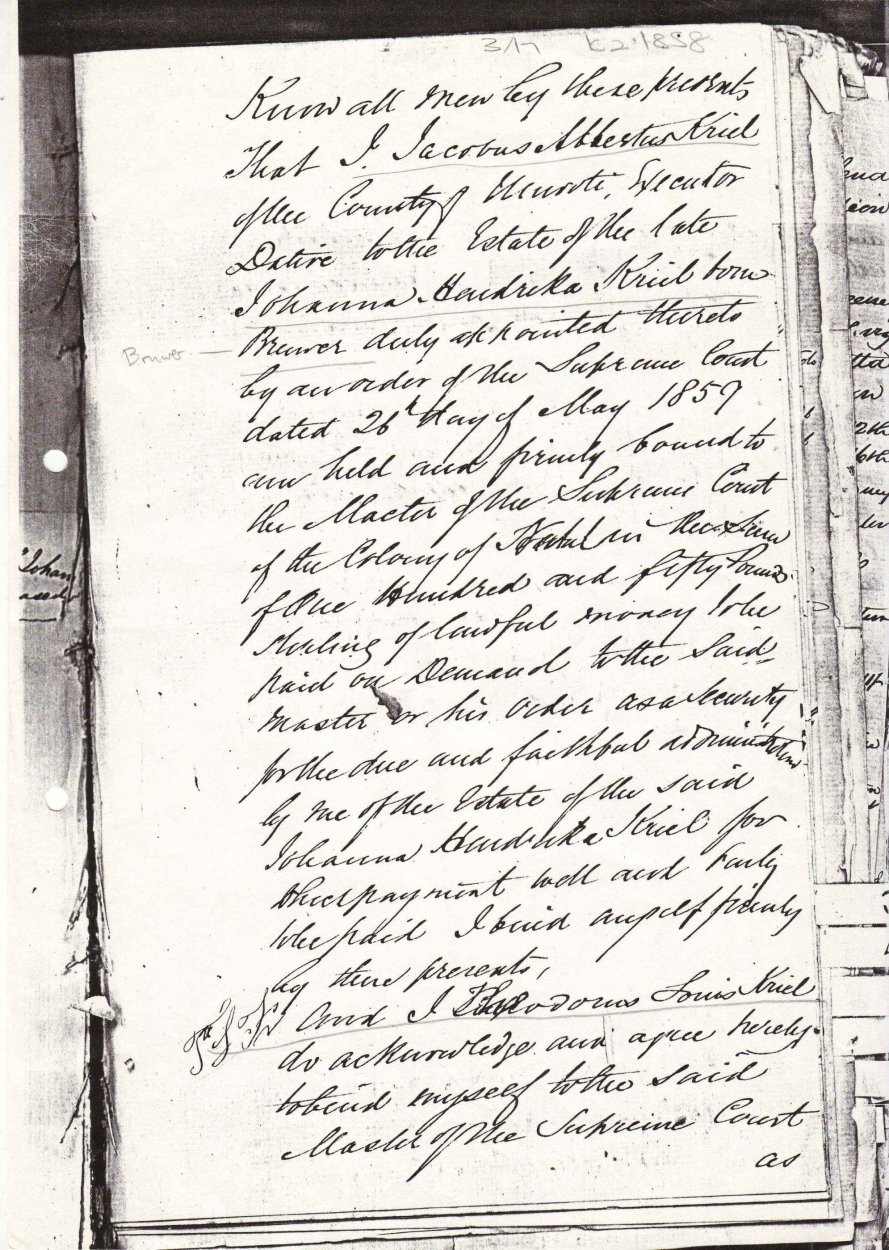 3/17 K2.1858
Know all men by these presents
That I. Jacobus Albertus Kriel
of the County of Umvoti, Executor
Dative to the Estate of the late
Johanna Hendrika Kriel born
Bruwer duly appointed thereto
Bruwer
by an order of the Supreme Court
dated 26th day of May 1859
am held and firmly bound to
the Master of the Supreme Court
of the Colony of Natal in the Sum
of One Hundred and fifty Pounds
Sterling of lawful money to be
paid on Demand to the Said
Master or his order as a Security
for the due and faithful administration
by me of the Estate of the said
Johanna Hendrika Kriel for
which payment well and truly
to be paid I bind myself firmly
by these presents,
And I Theodorus Louis Kriel
do acknowledge and agree hereby
to bind myself to the said
Master of the Supreme Court
as